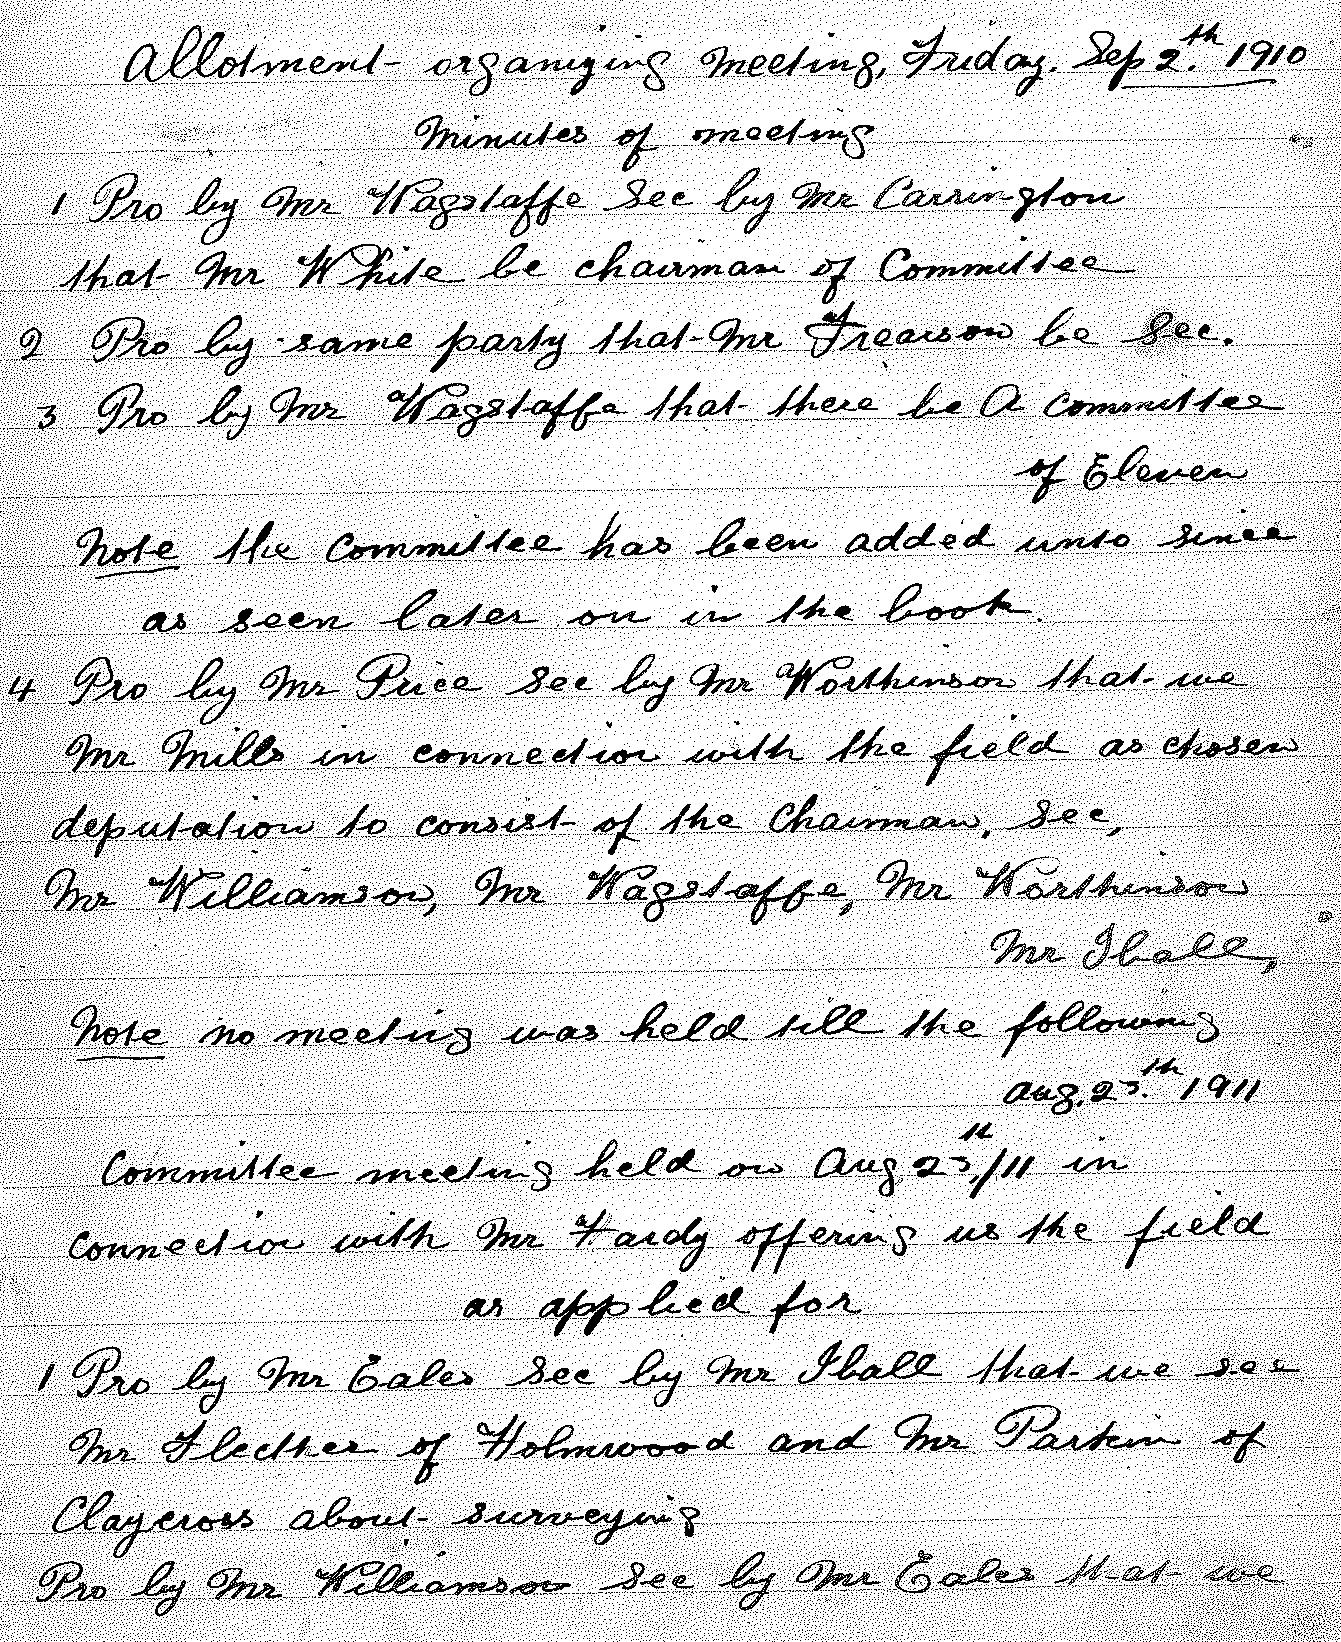 Allotment organizing Meeting, Friday. Sep 2.th 1910
Minutes of meeting
1 Pro by Mr Wagstaffe Sec by Mr Carrington
that Mr White be chairman of Committee
2 Pro by same party that Mr Frearson be Sec.
3 Pro by Mr Wagstaffe that there be A committee
of Eleven
Note the Committee has been added unto since
as seen later on in the book.
4 Pro by Mr Price Sec by Mr Worthinson that we
Mr Mills in connection with the field as chosen
deputation to consist of the Chairman, Sec,
Mr Williamson, Mr Wagstaffe, Mr Worthinson
Mr Iball,
Note no meeting was held till the following
Aug. 23.th 1911
Committee meeting held on Aug 23th/11 in
connection with Mr Hardy offering us the field
as applied for
1 Pro by Mr Eales Sec by Mr Iball that we see
Mr Flecther of Holmwood and Mr Parkin of
Claycross about surveying
Pro by Mr Williamson Sec by Mr Eales that we